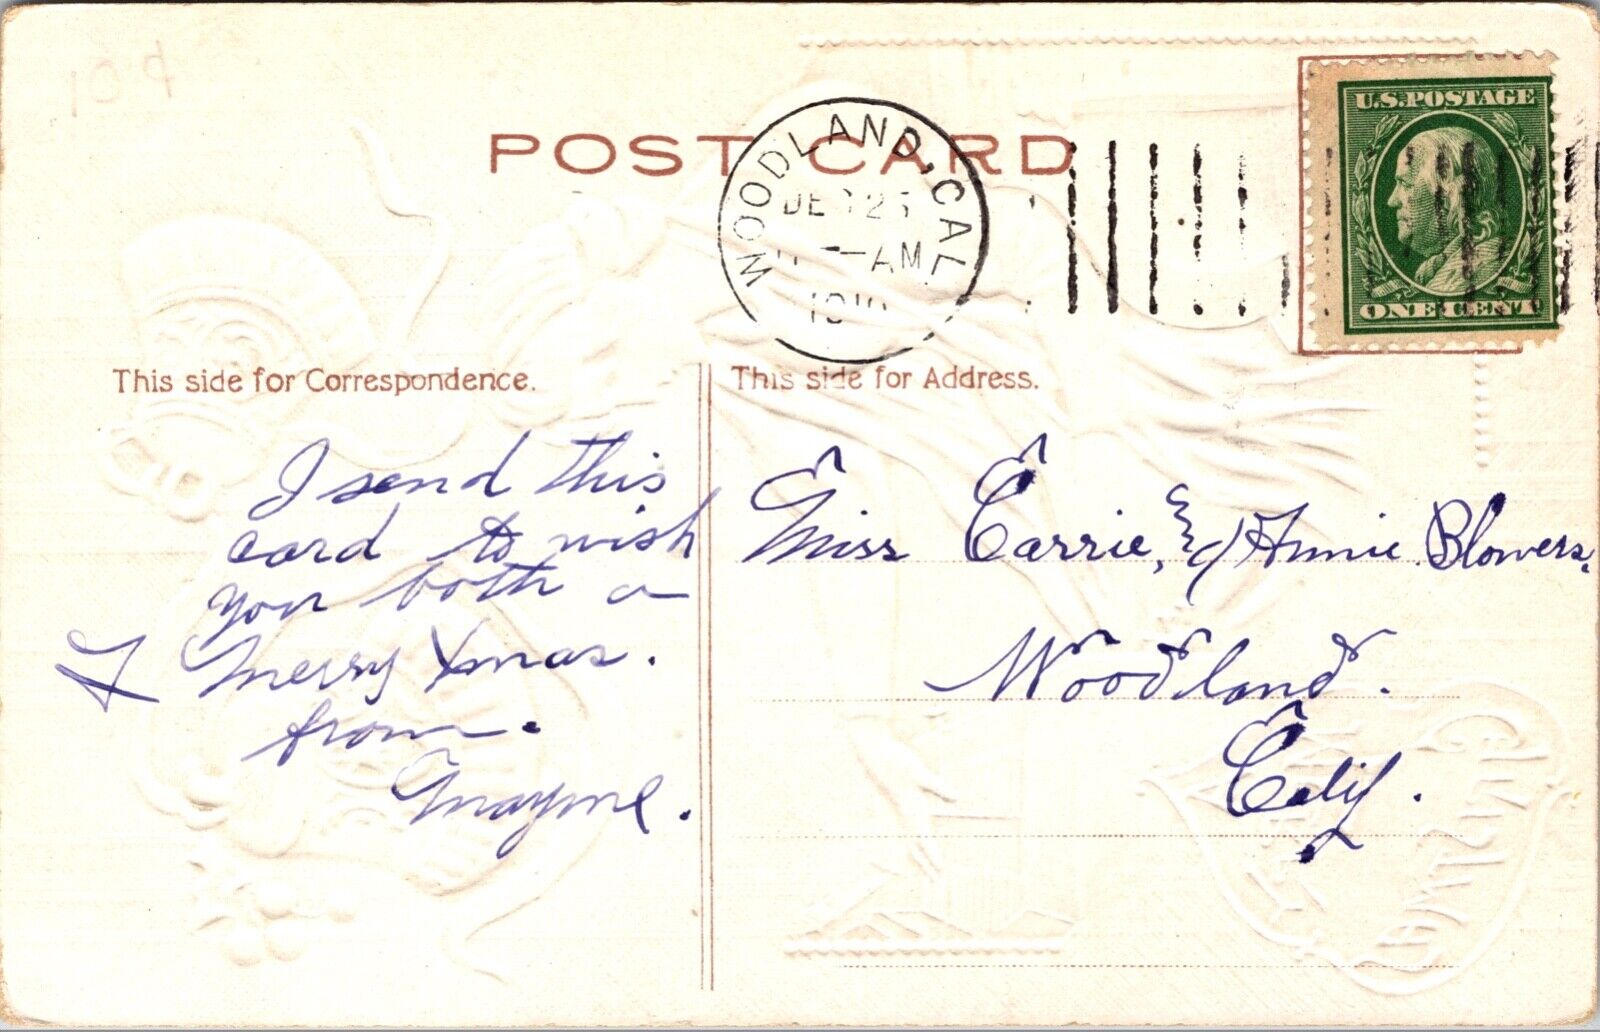 10¢
POST CARD
WOODLAND, CAL.
DEC 25
AM
1910
U.S. POSTAGE
ONE CENT
This side for Correspondence.
This side for Address.
I send this
card to wish
you both a
Merry Xmas.
from.
Mayme.
Miss Carrie, & Annie Blowers,
Woodland.
Calif.